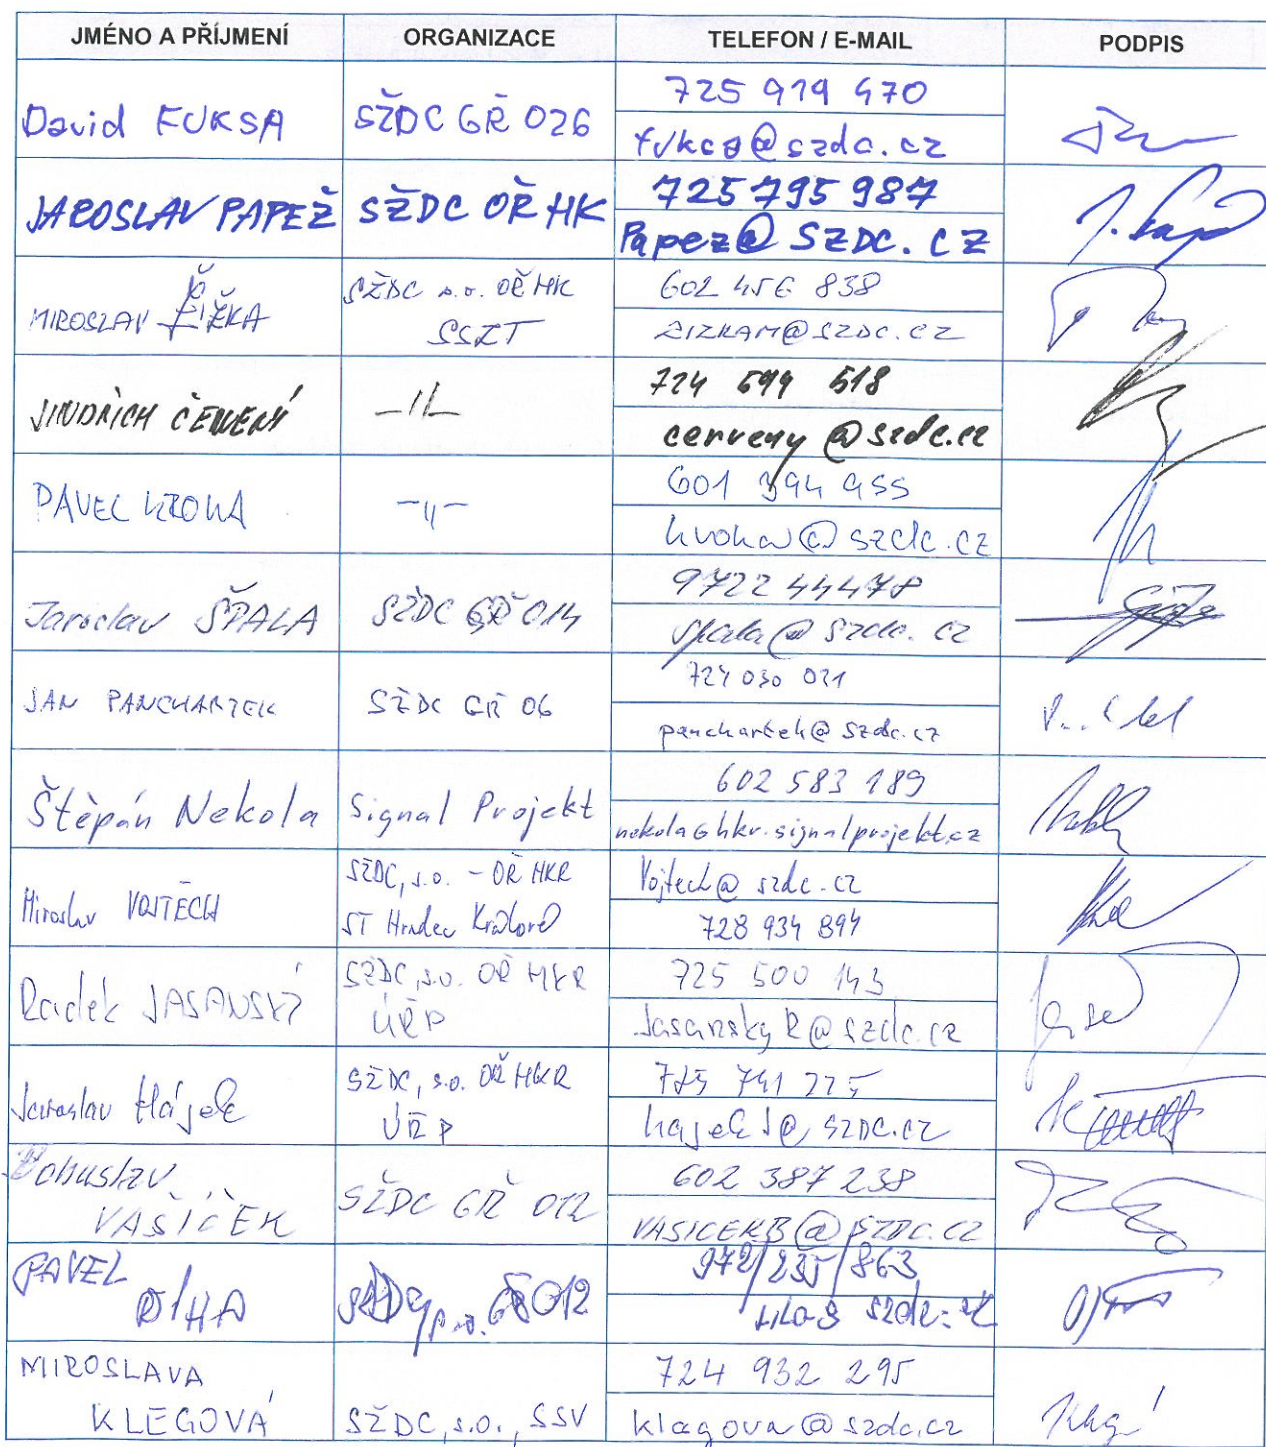 JMÉNO A PŘÍJMENÍ ORGANIZACE TELEFON / E-MAIL PODPIS
David FUKSA SŽDC GŘ 026 725 919 470
fuksa@szdc.cz
JAROSLAV PAPEŽ SŽDC OŘ HK 725 795 987
Papez@SZDC.CZ
MIROSLAV ŽIŽKA SŽDC s.o. OŘ HK 602 456 838
SSZT ZIZKAM@SZDC.CZ
JINDŘICH ČERVENÝ -11- 724 694 518
cerveny@szdc.cz
PAVEL KROHA -"- 601 394 955
kroha@szdc.cz
Jaroslav ŠPALA SŽDC GŘ O14 9722 44478
spala@szdc.cz
JAN PANCHARTEK SŽDC GŘ O6 724 030 021
panchartek@szdc.cz
Štěpán Nekola Signal Projekt 602 583 189
nekola@hkr.signalprojekt.cz
Miroslav VOJTĚCH SŽDC, s.o. - OŘ HKR Vojtech@szdc.cz
ST Hradec Králové 728 934 894
Radek JASANSKÝ SŽDC, s.o. OŘ HKR 725 500 143
ÚŘP JasanskyR@szdc.cz
Jaroslav Hájek SŽDC, s.o. OŘ HKR 725 741 225
ÚŘP hajekJ@SZDC.CZ
Bohuslav 602 387 238
VAŠÍČEK SŽDC GŘ O12 VASICEKB@SZDC.CZ
PAVEL 972/235/863
ŘÍHA O12 szdc.cz
MIROSLAVA 724 932 295
KLEGOVÁ SŽDC, s.o., SSV klegova@szdc.cz